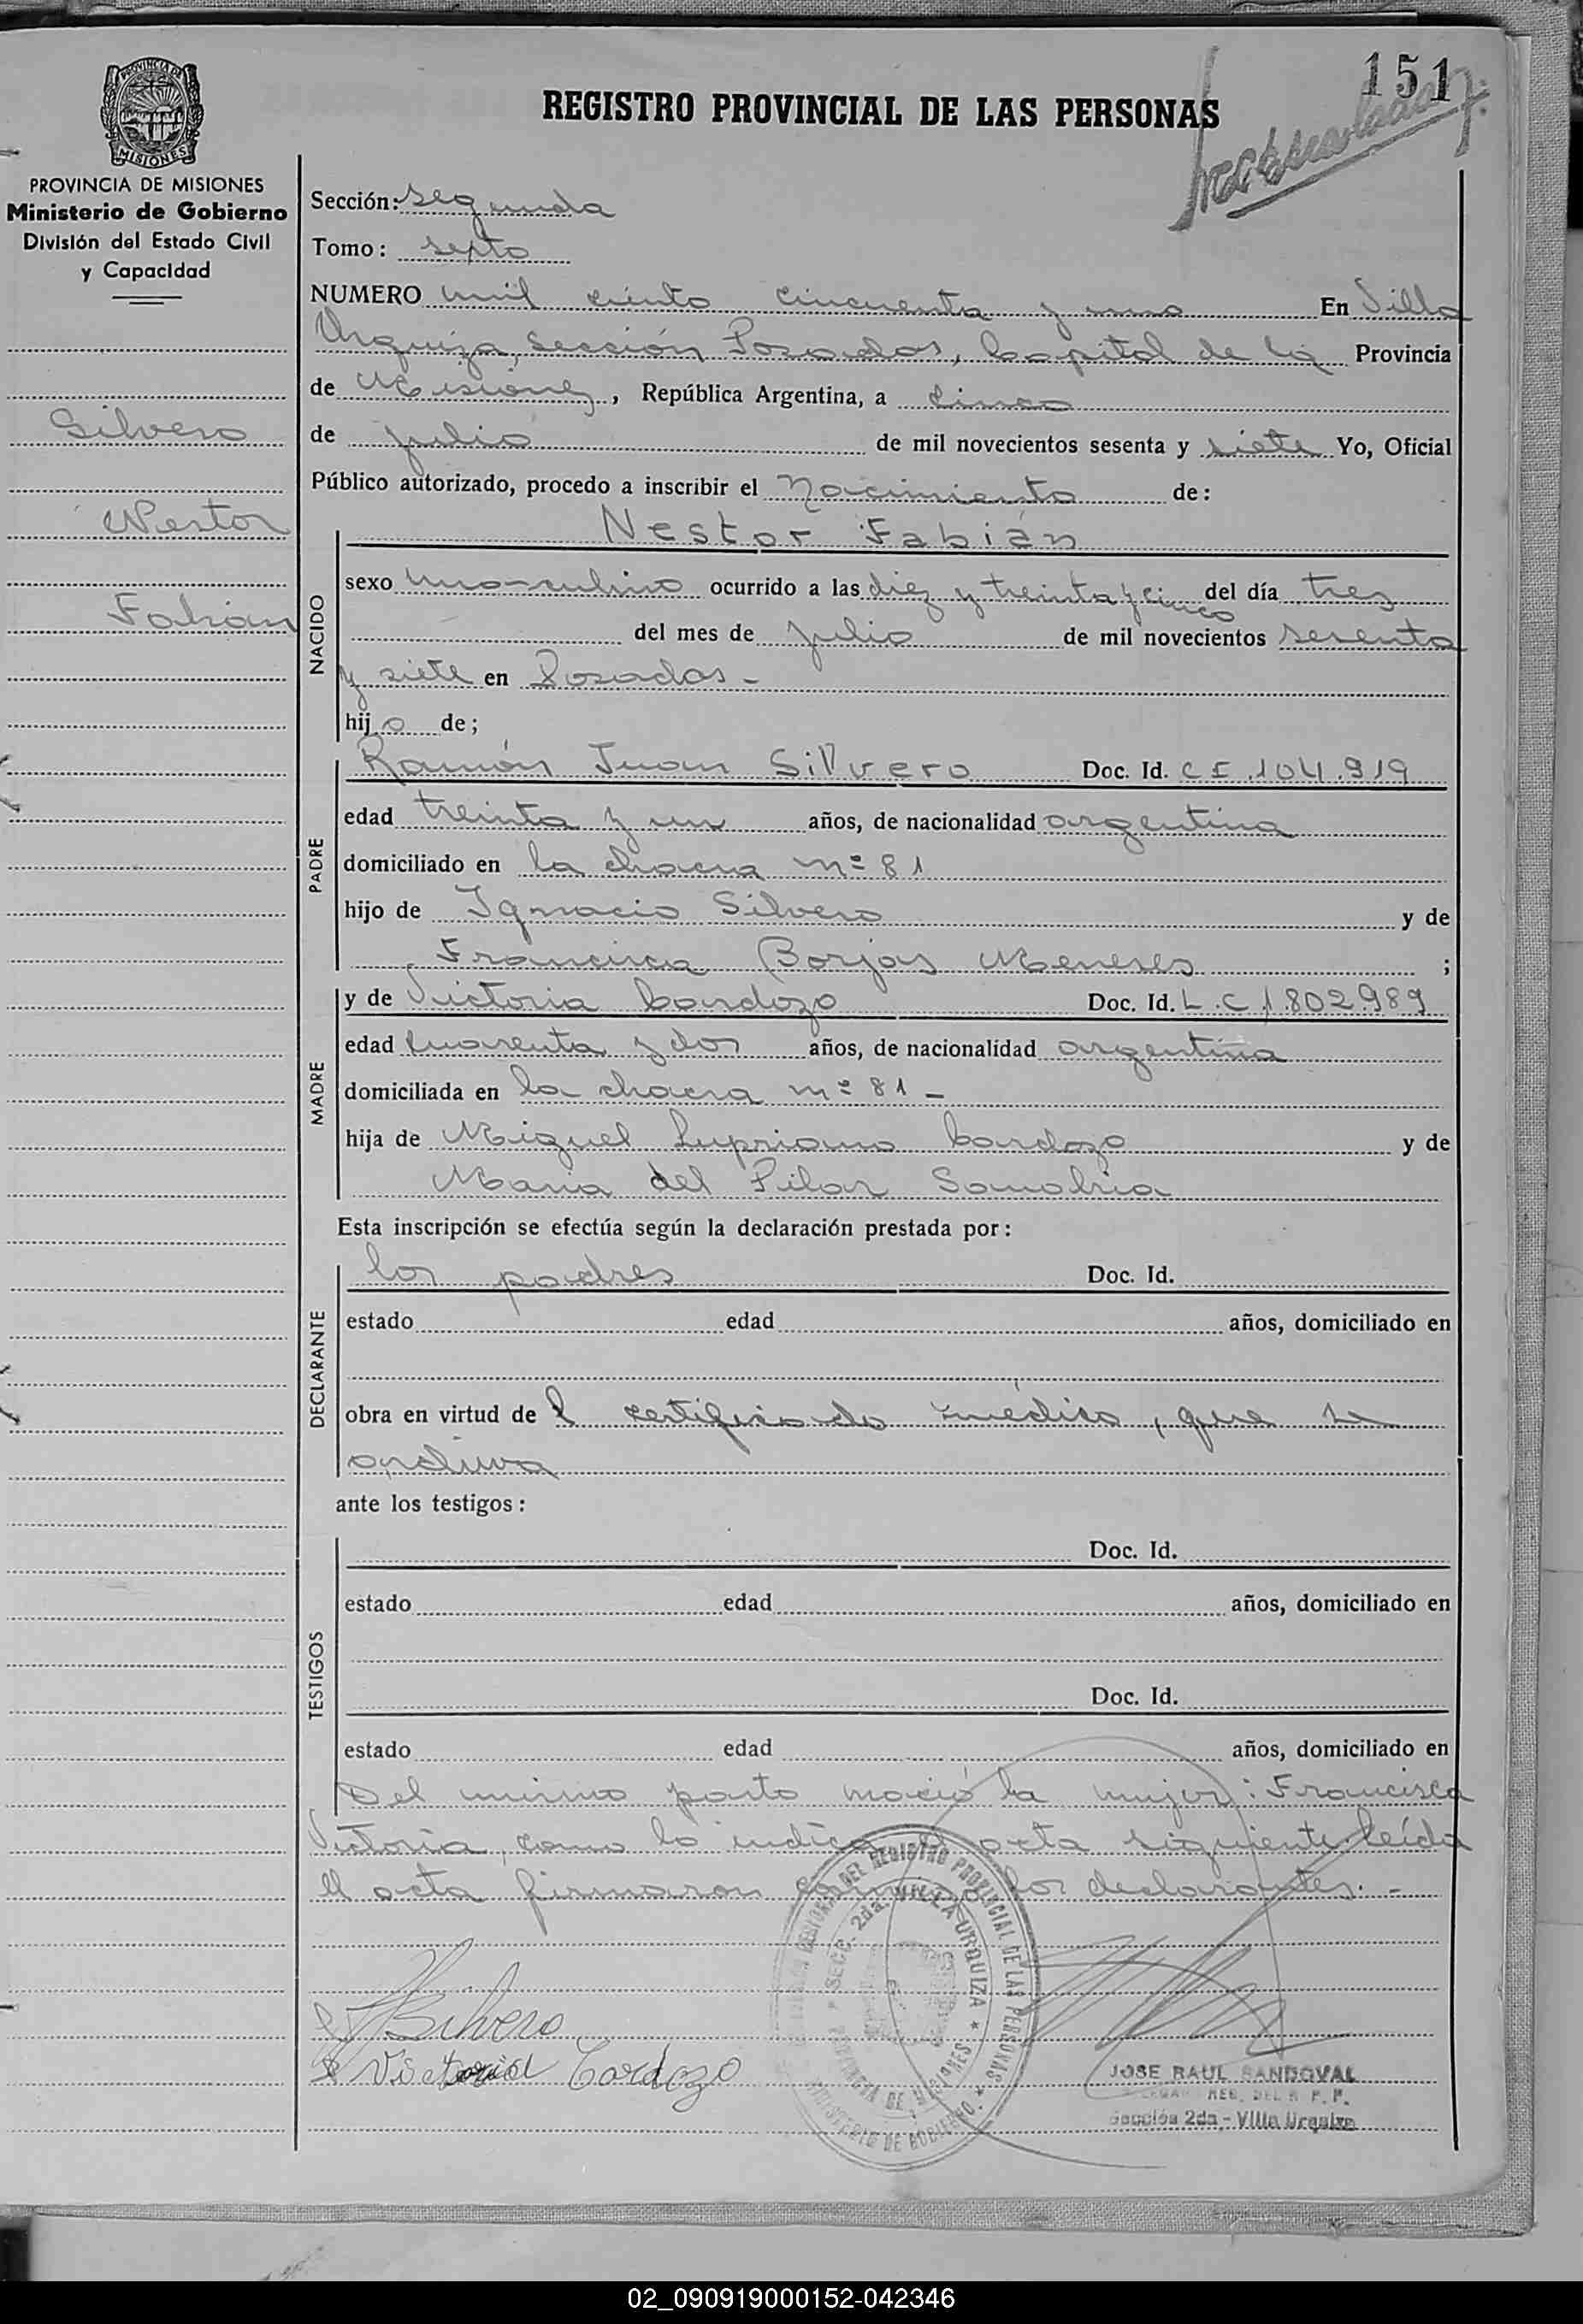 151
REGISTRO PROVINCIAL DE LAS PERSONAS
PROVINCIA DE MISIONES
MISIONES
PROVINCIA DE MISIONES
Ministerio de Gobierno
División del Estado Civil
y Capacidad
Silvero
Nestor
Fabian
Sección: segunda
Tomo: septo
NUMERO mil ciento cincuenta y uno En Villa
Urquiza, Sección Posadas, Capital de la Provincia
de Misiones, República Argentina, a cinco
de julio de mil novecientos sesenta y siete Yo, Oficial
Público autorizado, procedo a inscribir el Nacimiento de:
NACIDO
Nestor Fabián
sexo masculino ocurrido a las diez y treinta y cinco del día tres
del mes de julio de mil novecientos sesenta
y siete en Posadas -
hijo de;
PADRE
Ramón Juan Silvero Doc. Id. C I .104.919
edad treinta y un años, de nacionalidad argentina
domiciliado en la chacra nº 81
hijo de Ignacio Silvero y de
Francisca Borjas Meneses ;
MADRE
y de Victoria Cardozo Doc. Id. L.C 1.802.989
edad cuarenta y dos años, de nacionalidad argentina
domiciliada en la chacra nº 81 -
hija de Miguel Cupriano Cardozo y de
Maria del Pilar Sanabria
Esta inscripción se efectúa según la declaración prestada por:
DECLARANTE
los padres Doc. Id.
estado edad años, domiciliado en
obra en virtud de l certificado médico, que se
archiva
ante los testigos:
TESTIGOS
Doc. Id.
estado edad años, domiciliado en
Doc. Id.
estado edad años, domiciliado en
Del mismo parto nació la mujer: Francisca
Victoria, como lo indica el acta siguiente. Leída
el acta firmaron los declarantes. -
Silvero
Victoria Cardozo
DEL REGISTRO PROVINCIAL DE LAS PERSONAS
SECC. 2da. VILLA URQUIZA
PROVINCIA DE MISIONES
MINISTERIO DE GOBIERNO
JOSE RAUL SANDOVAL
REG. DEL R. P. P.
Sección 2da - Villa Urquiza
02_090919000152-042346